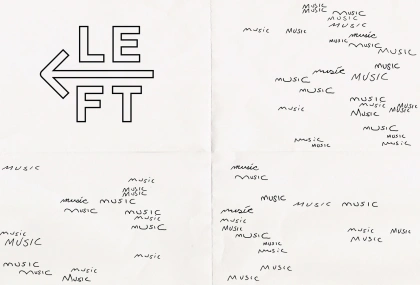 LE
FT
MUSIC
MUSIC
music
music
music
music
MUSIC
music
music
music
MUSIC
music
music
music
MUSIC
music
music
music
music
music
MUSIC
Music
music
music
music
music
music
music
MUSIC
music
MUSIC
MUSIC
music
music
music
music
music
music
music
MUSIC
music
music
music
music
MUSIC
music
music
MUSIC
MUSIC
music
music
music
music
music
music
music
music
music
music
music
MUSIC
MUSIC